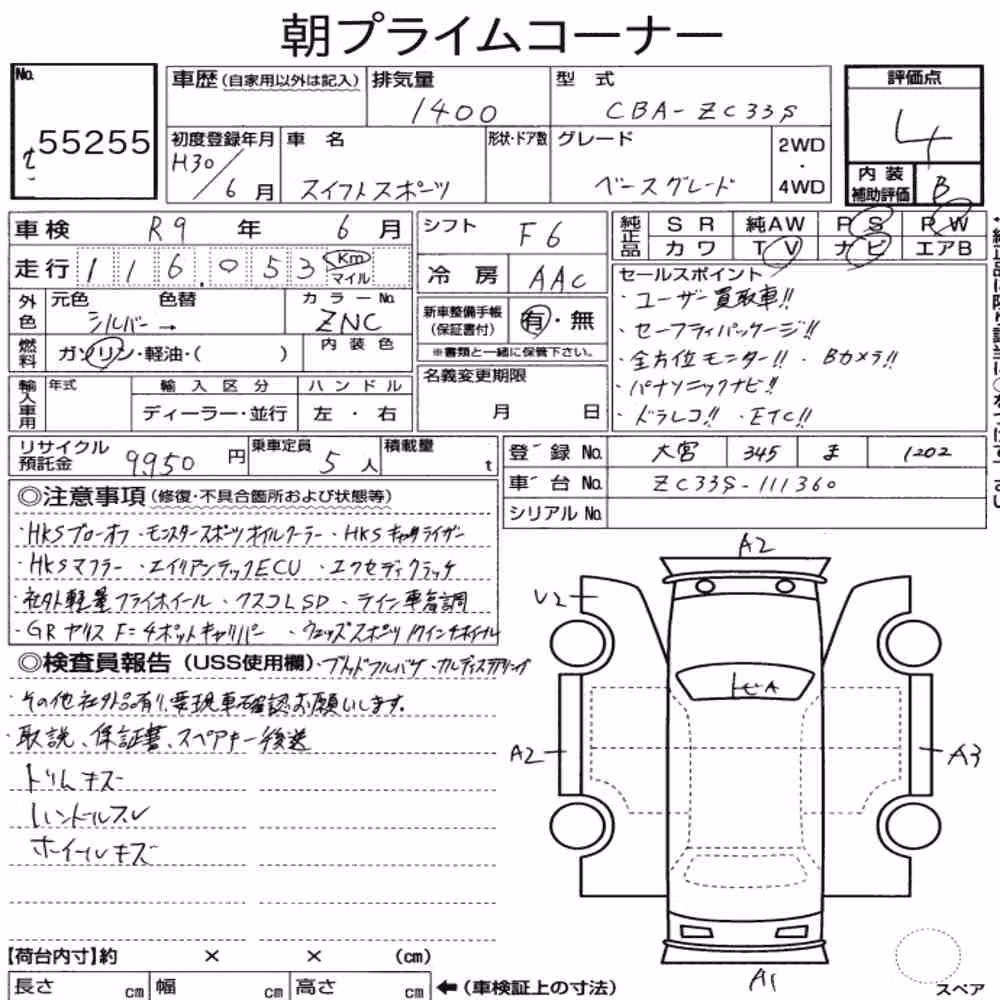 朝プライムコーナー
No. 55255
車歴(自家用以外は記入) 排気量 1400 型式 CBA-ZC33S 評価点 4
初度登録年月 H30/6月 車名 スイフトスポーツ 形状・ドア数 グレード ベースグレード 2WD・4WD 内装補助評価 B
車検 R9年 6月 シフト F6 純正品 SR 純AW PS PW
カワ TV ナビ エアB
走行 116,053 Km マイル 冷房 AAC セールスポイント
・ユーザー買取車!!
外色 元色 シルバー→ 色替 カラーNo. ZNC 新車整備手帳(保証書付) 有・無 ・セーフティパッケージ!!
燃料 ガソリン・軽油・( ) 内装色 ※書類と一緒に保管下さい。 ・全方位モニター!! ・Bカメラ!!
輸入車用 年式 輸入区分 ハンドル 名義変更期限 ・パナソニックナビ!!
ディーラー・並行 左・右 月 日 ・ドラレコ!! ・ETC!!
リサイクル預託金 9950円 乗車定員 5人 積載量 t 登録No. 大宮 345 ま 1202
車台No. ZC33S-111360
シリアルNo.
◎注意事項(修復・不具合箇所および状態等)
・HKSブローオフ ・モンスタースポーツオイルクーラー ・HKSキャタライザー
・HKSマフラー ・エイリアンテックECU ・エクセディクラッチ
・社外軽量フライホイール ・クスコLSD ・テイン車高調
・GRヤリスF=4ポットキャリパー ・ウェッズスポーツ17インチホイール
◎検査員報告(USS使用欄)・ブリッドフルバケ
・その他社外品有り、要現車確認お願いします。
・取説、保証書、スペアキー後送
トリムキズ
ハンドルスレ
ホイールキズ
A2
U2
A2
A3
A1
【荷台内寸】約 × × (cm)
長さ cm 幅 cm 高さ cm ←(車検証上の寸法)
スペア